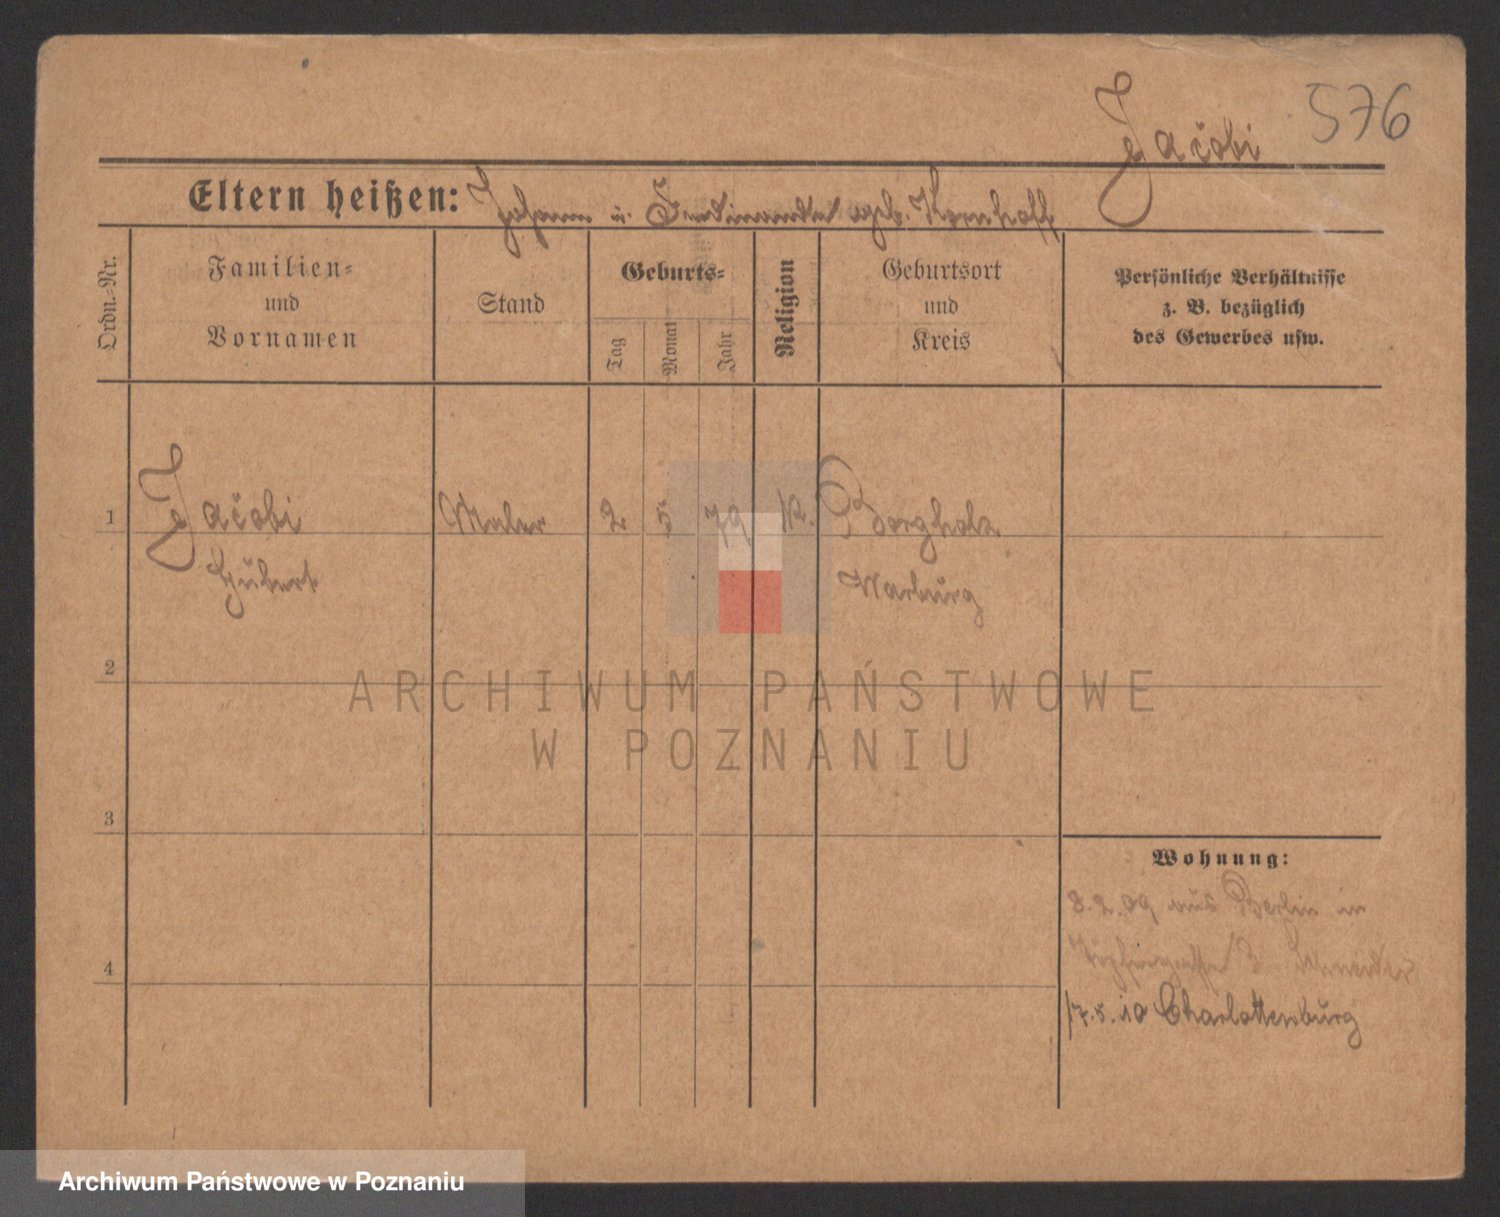 Jacobi 576
Eltern heißen: Johann u. Ferdinande geb. Kornhoff
Ordn.-Nr.
Familien-
und
Vornamen
Stand
Geburts-
Tag
Monat
Jahr
Religion
Geburtsort
und
Kreis
Persönliche Verhältnisse
z. B. bezüglich
des Gewerbes usw.
1 Jacobi Maler 2 5 79 K. Borgholz
Hubert Warburg
2
ARCHIWUM PAŃSTWOWE
W POZNANIU
3
Wohnung:
8.2.09 aus Berlin in
3
4
17.5.10 Charlottenburg
Archiwum Państwowe w Poznaniu